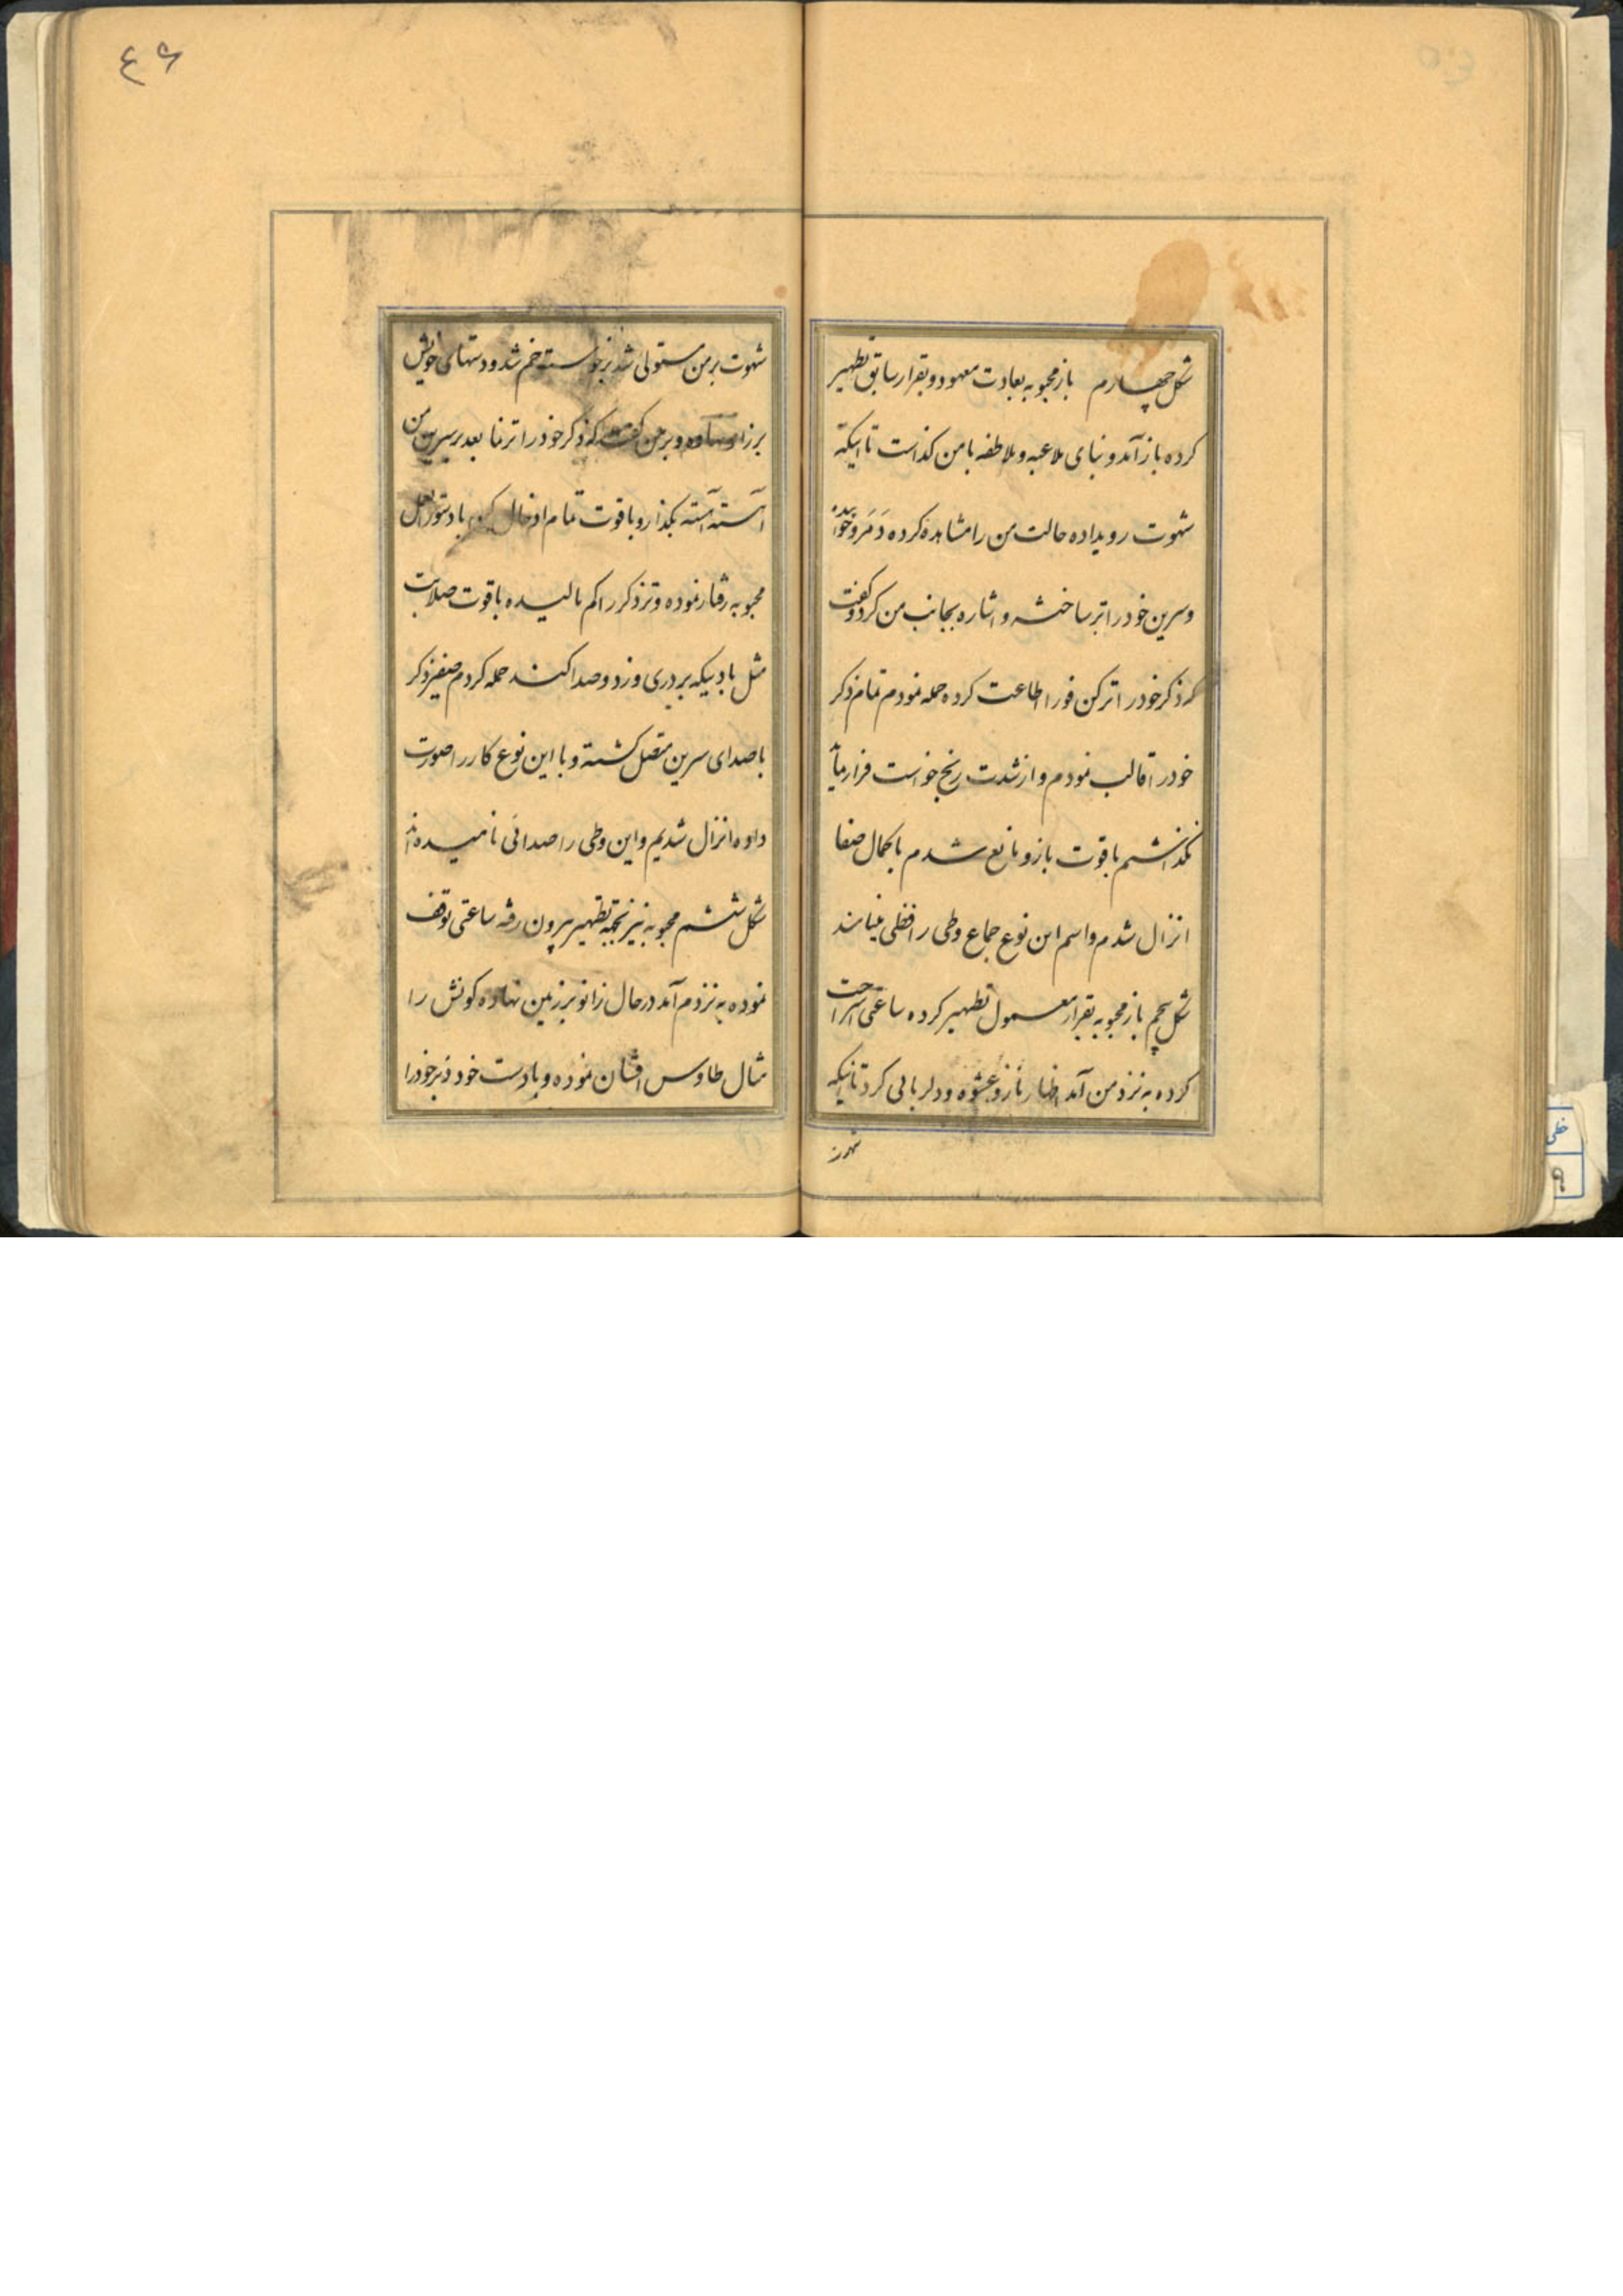 شکل چهارم باز محبوبه بعادت معهود و بقرار سابق تطهیر
کرده باز آمد و بنای ملاعبه و ملاطفه با من کذاست تا اینکه
شهوت رویداده حالت من را مشاهده کرده دمر و خوابیده
و سرین خود را تر ساخته و اشاره بجانب من کرد و کفت
که ذکر خود را تر کن فورا اطاعت کرده حمله نمودم تمام ذکر
خود را قالب نمودم و از شدت رنج خواست فرار نماید
نکذاشتم با قوت بازو مانع شدم با کمال صفا
انزال شدم واسم این نوع جماع وطی را مینامند
شکل پنجم باز محبوبه بقرار معمول تطهیر کرده ساعتی استراحت
کرده به نزد من آمد اظهار ناز و عشوه و دلربائی کرد تا اینکه
شهوت
٤۶
شهوت بر من مستولی شد برخواسته خم شد و دستهای خویش
بر زانو نهاده و بر من کفت که ذکر خود را تر نما بعد بر سرین من
آهسته آهسته بکذار و با قوت تمام ادخال کن با دستورالعمل
محبوبه رفتار نموده و تر ذکر را کم مالیده با قوت صلابت
مثل بادیکه بر دری وزد و صدا کند حمله کردم صفیر ذکر
با صدای سرین متصل کشته و با این نوع کار را صورت
داده انزال شدیم و این وطی را صدائی نامیده‌اند
شکل ششم محبوبه نیز بجهة تطهیر بیرون رفته ساعتی توقف
نموده به نزدم آمد در حال زانو بر زمین نهاده کونش را
مثال طاوس افشان نموده و با دست خود ذبر خود را
خطی